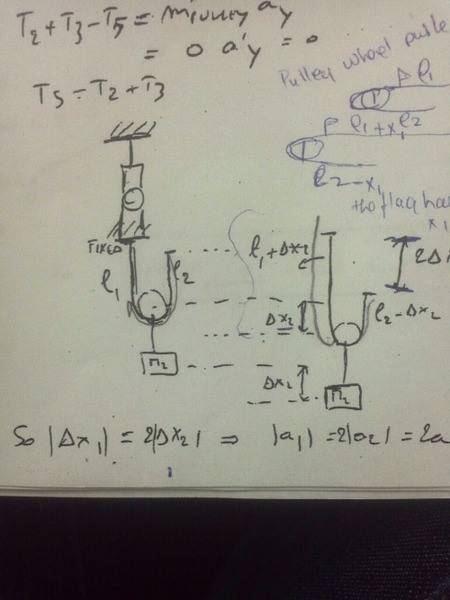 T₂ + T₃ - T₅ = m pulley ay
= 0 a'y = 0
T₅ = T₂ + T₃
Pulley wheel
P l₁
P l₁ + x₁ l₂
l₂ - x₁
x₁
FIXED
l₁
l₂
m₂
l₁ + Δx₂
Δx₂
l₂ - Δx₂
2Δ
Δx₂
m₂
So |Δx₁| = 2|Δx₂| ⇒ |a₁| = 2|a₂| = 2a